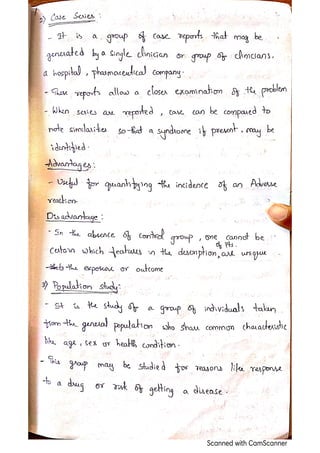 2) Case Series:
- It is a group of case reports that may be
generated by a single clinician or group of clinicians.
a hospital, pharmaceutical company.
- These reports allow a closer examination of the problem
- When series are reported, case can be compared to
note similarities so that a syndrome if present may be
identified.
Advantages:
- Useful for quantifying the incidence of an Adverse
reaction
Disadvantage:
- In the absence of control group, one cannot be
of Pts.
certain which features in the description are unique
to the exposure or outcome
3) Population study:
- It is the study of a group of individuals taken
from the general population who share common characteristic
like age, sex or health condition.
- This group may be studied for reasons like response
to a drug or risk of getting a disease.
Scanned with CamScanner